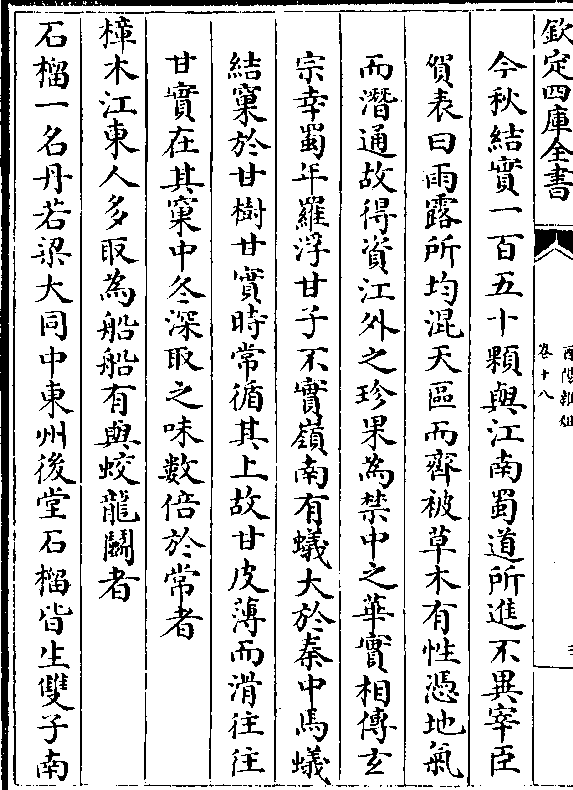 欽定四庫全書
酉陽雜俎
卷十八
今秋結實一百五十顆與江南蜀道所進不異宰臣
賀表曰雨露所均混天區而齊被草木有性憑地氣
而潛通故得資江外之珍果為禁中之華實相傳玄
宗幸蜀年羅浮甘子不實嶺南有蟻大於秦中馬蟻
結窠於甘樹甘實時常循其上故甘皮薄而滑往往
甘實在其窠中冬深取之味數倍於常者
樟木江東人多取為船船有與蛟龍鬭者
石榴一名丹若梁大同中東州後堂石榴皆生雙子南